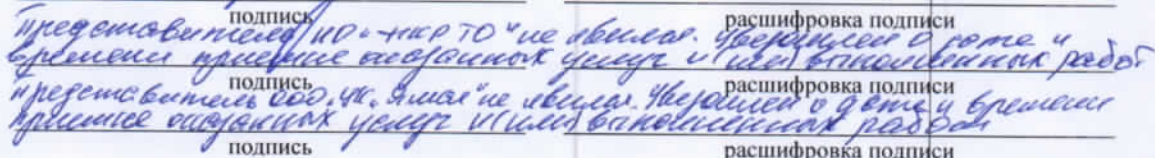 подпись расшифровка подписи
Представитель НО "НКР ТО" не явился. Уведомлен о дате и
времени приемке оказанных услуг и (или) выполненных работ
подпись расшифровка подписи
Представитель ООО "УК "Ямал" не явился. Уведомлен о дате и времени
приемке оказанных услуг и (или) выполненных работ
подпись расшифровка подписи